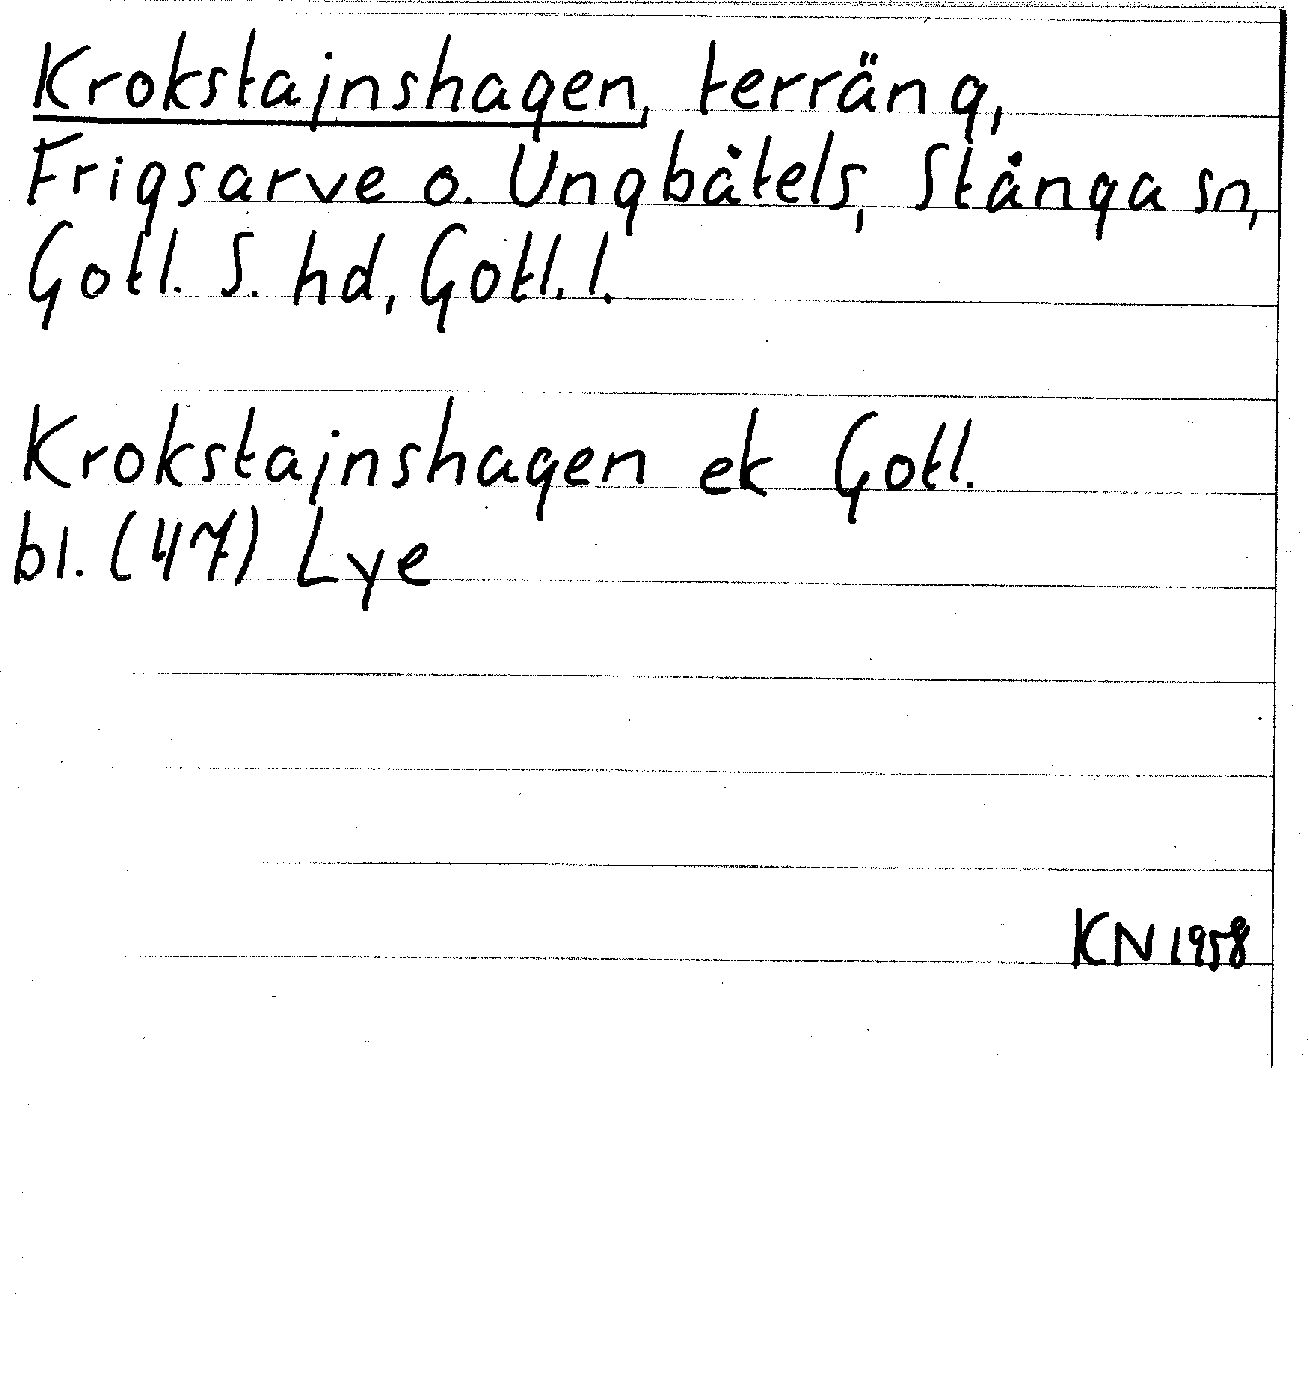 Krokstajnshagen, terräng,
Frigsarve o. Ungbåtels, Stånga sn,
Gotl. S. hd, Gotl. l.
Krokstajnshagen ek Gotl.
bl. (47) Lye
KN 1958